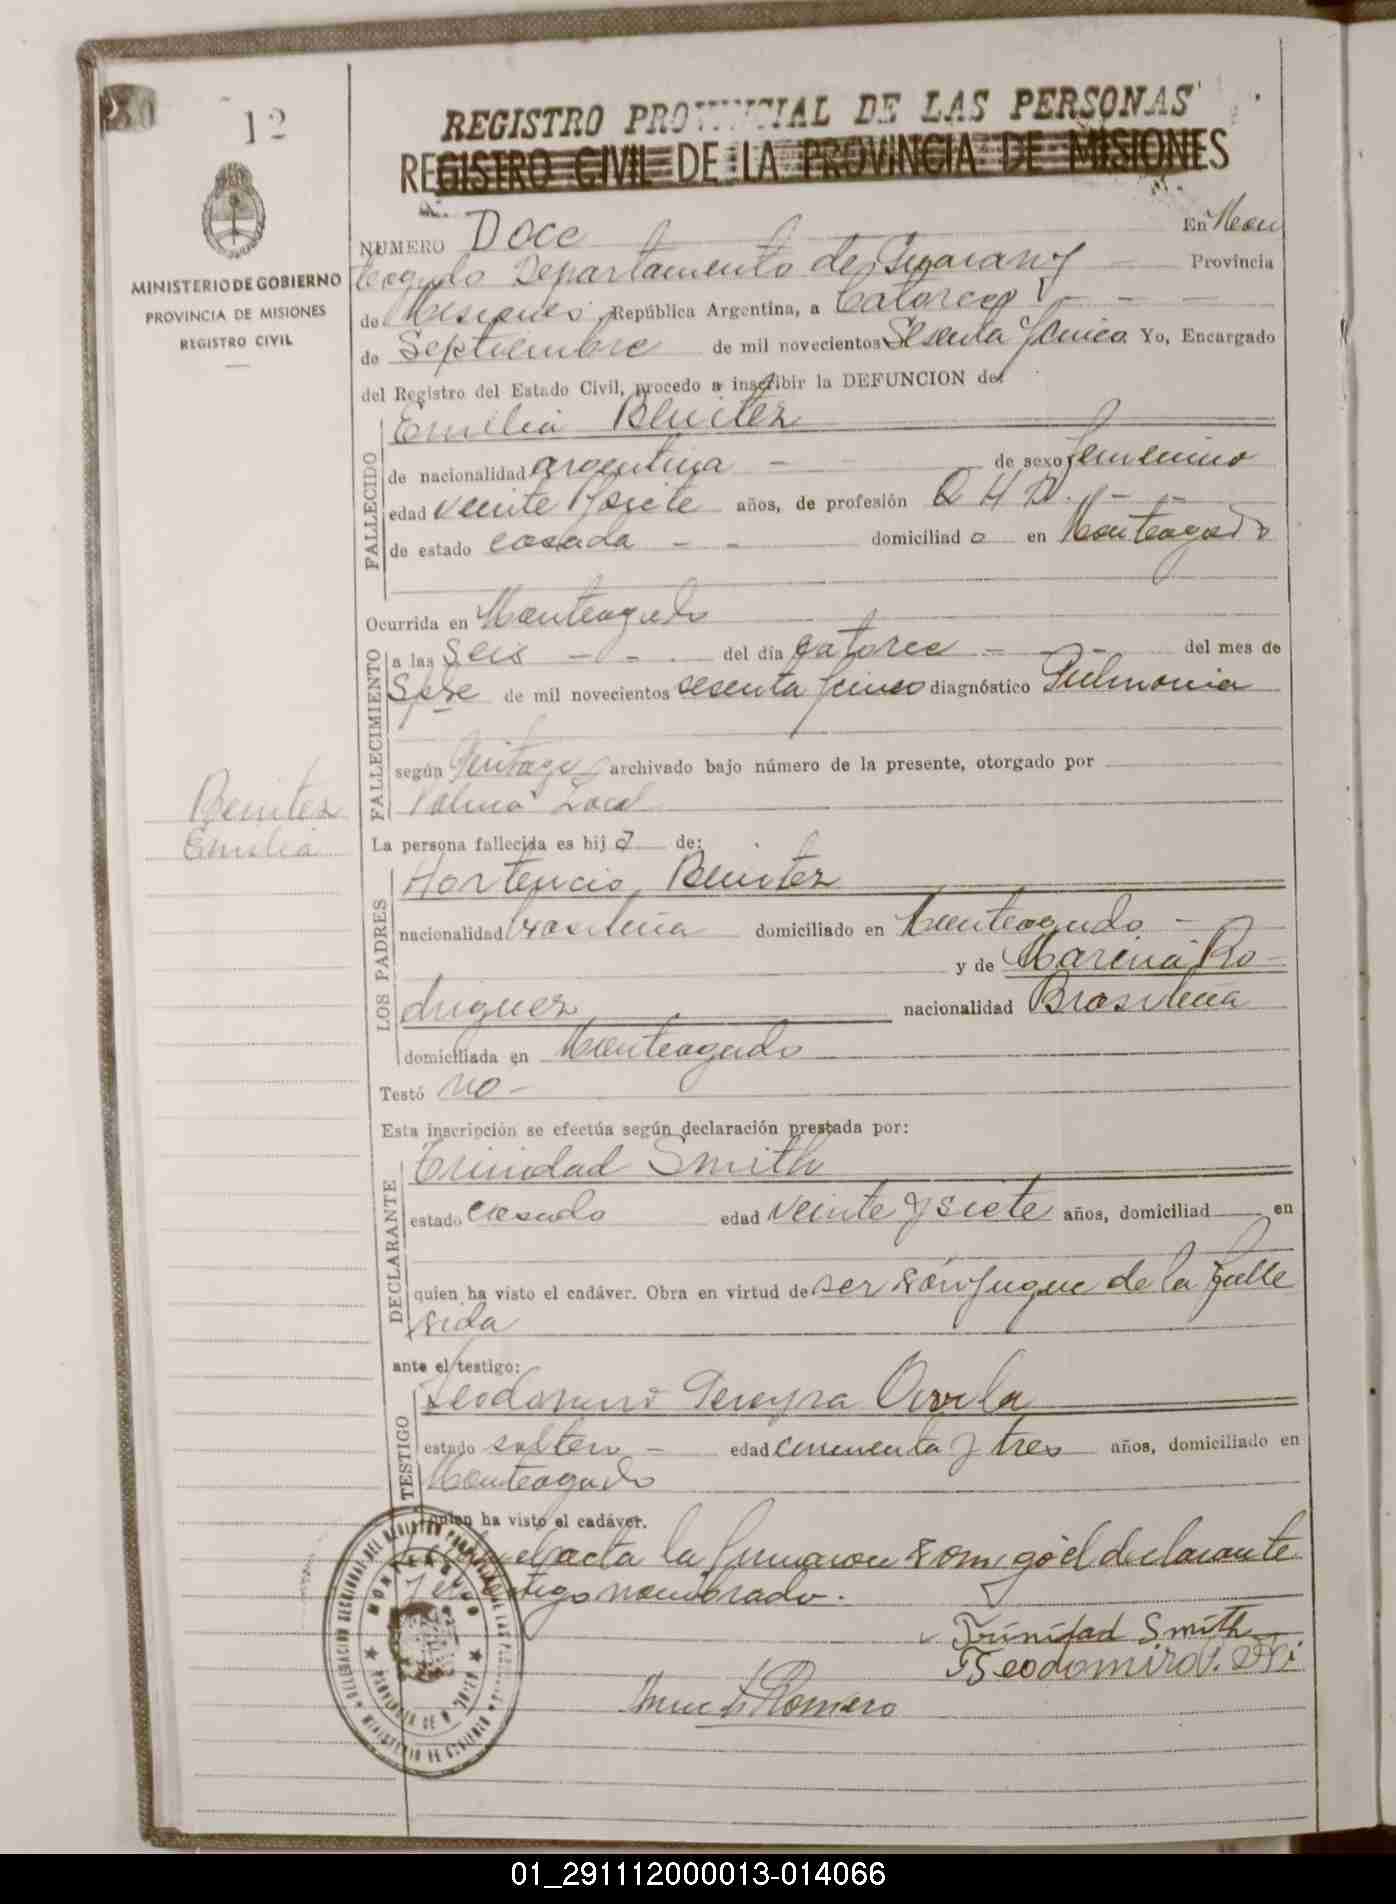 12
REGISTRO PROVINCIAL DE LAS PERSONAS
REGISTRO CIVIL DE LA PROVINCIA DE MISIONES
MINISTERIO DE GOBIERNO
PROVINCIA DE MISIONES
REGISTRO CIVIL
NUMERO Doce En Mon
teagudo Departamento de Guarany Provincia
de Misiones, República Argentina, a Catorce
de Septiembre de mil novecientos Sesenta y cinco Yo, Encargado
del Registro del Estado Civil, procedo a inscribir la DEFUNCION de:
FALLECIDO
Emilia Benitez
de nacionalidad argentina - de sexo femenino
edad veinte y siete años, de profesión Q H D. - -
de estado casada - - domiciliad a en Monteagudo
Ocurrida en Monteagudo
FALLECIMIENTO
a las Seis - - del día catorce - - del mes de
Spbre de mil novecientos sesenta y cinco diagnóstico Pulmonia
según archivado bajo número de la presente, otorgado por
Local
Benitez
Emilia
La persona fallecida es hij a de:
LOS PADRES
Hortencio Benitez
nacionalidad brasileña domiciliado en Monteagudo -
y de Marina Ro-
driguez nacionalidad Brasileña
domiciliada en Monteagudo
Testó no -
Esta inscripción se efectúa según declaración prestada por:
DECLARANTE
Trinidad Smith
estado casado edad veinte y siete años, domiciliad en
quien ha visto el cadáver. Obra en virtud de ser cónjugue de la falle
sida
ante el testigo:
TESTIGO
Pereyra
estado soltero - edad cincuenta y tres años, domiciliado en
Monteagudo
quien ha visto el cadáver.
el acta la firmaron comigo el declarante
y el testigo nombrado.
Trinidad Smith
Teodomiro
Romero
DELEGACION SECCIONAL DEL REGISTRO PROVINCIAL DE LAS PERSONAS
MONTEAGUDO
PROVINCIA DE MISIONES
MINISTERIO DE GOBIERNO
01_291112000013-014066